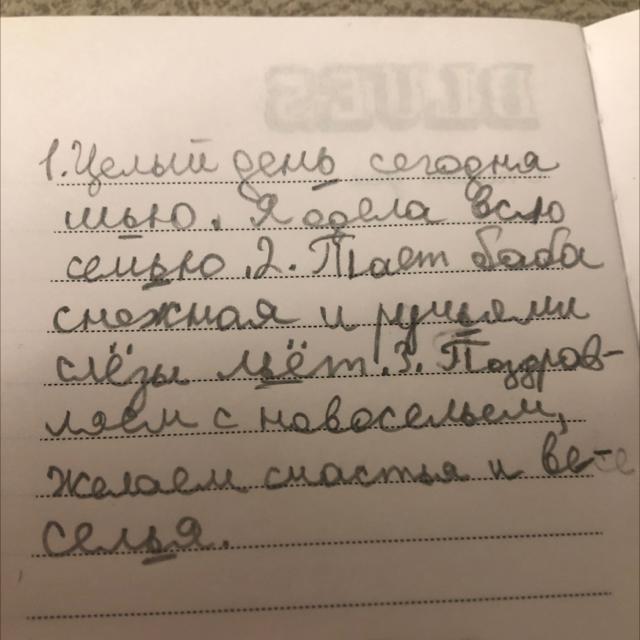 BLUES
1. Целый день сегодня
шью. Я одела всю
семью. 2. Тает баба
снежная и ручьями
слёзы льёт. 3. Поздрав-
ляем с новосельем,
желаем счастья и ве-
селья.